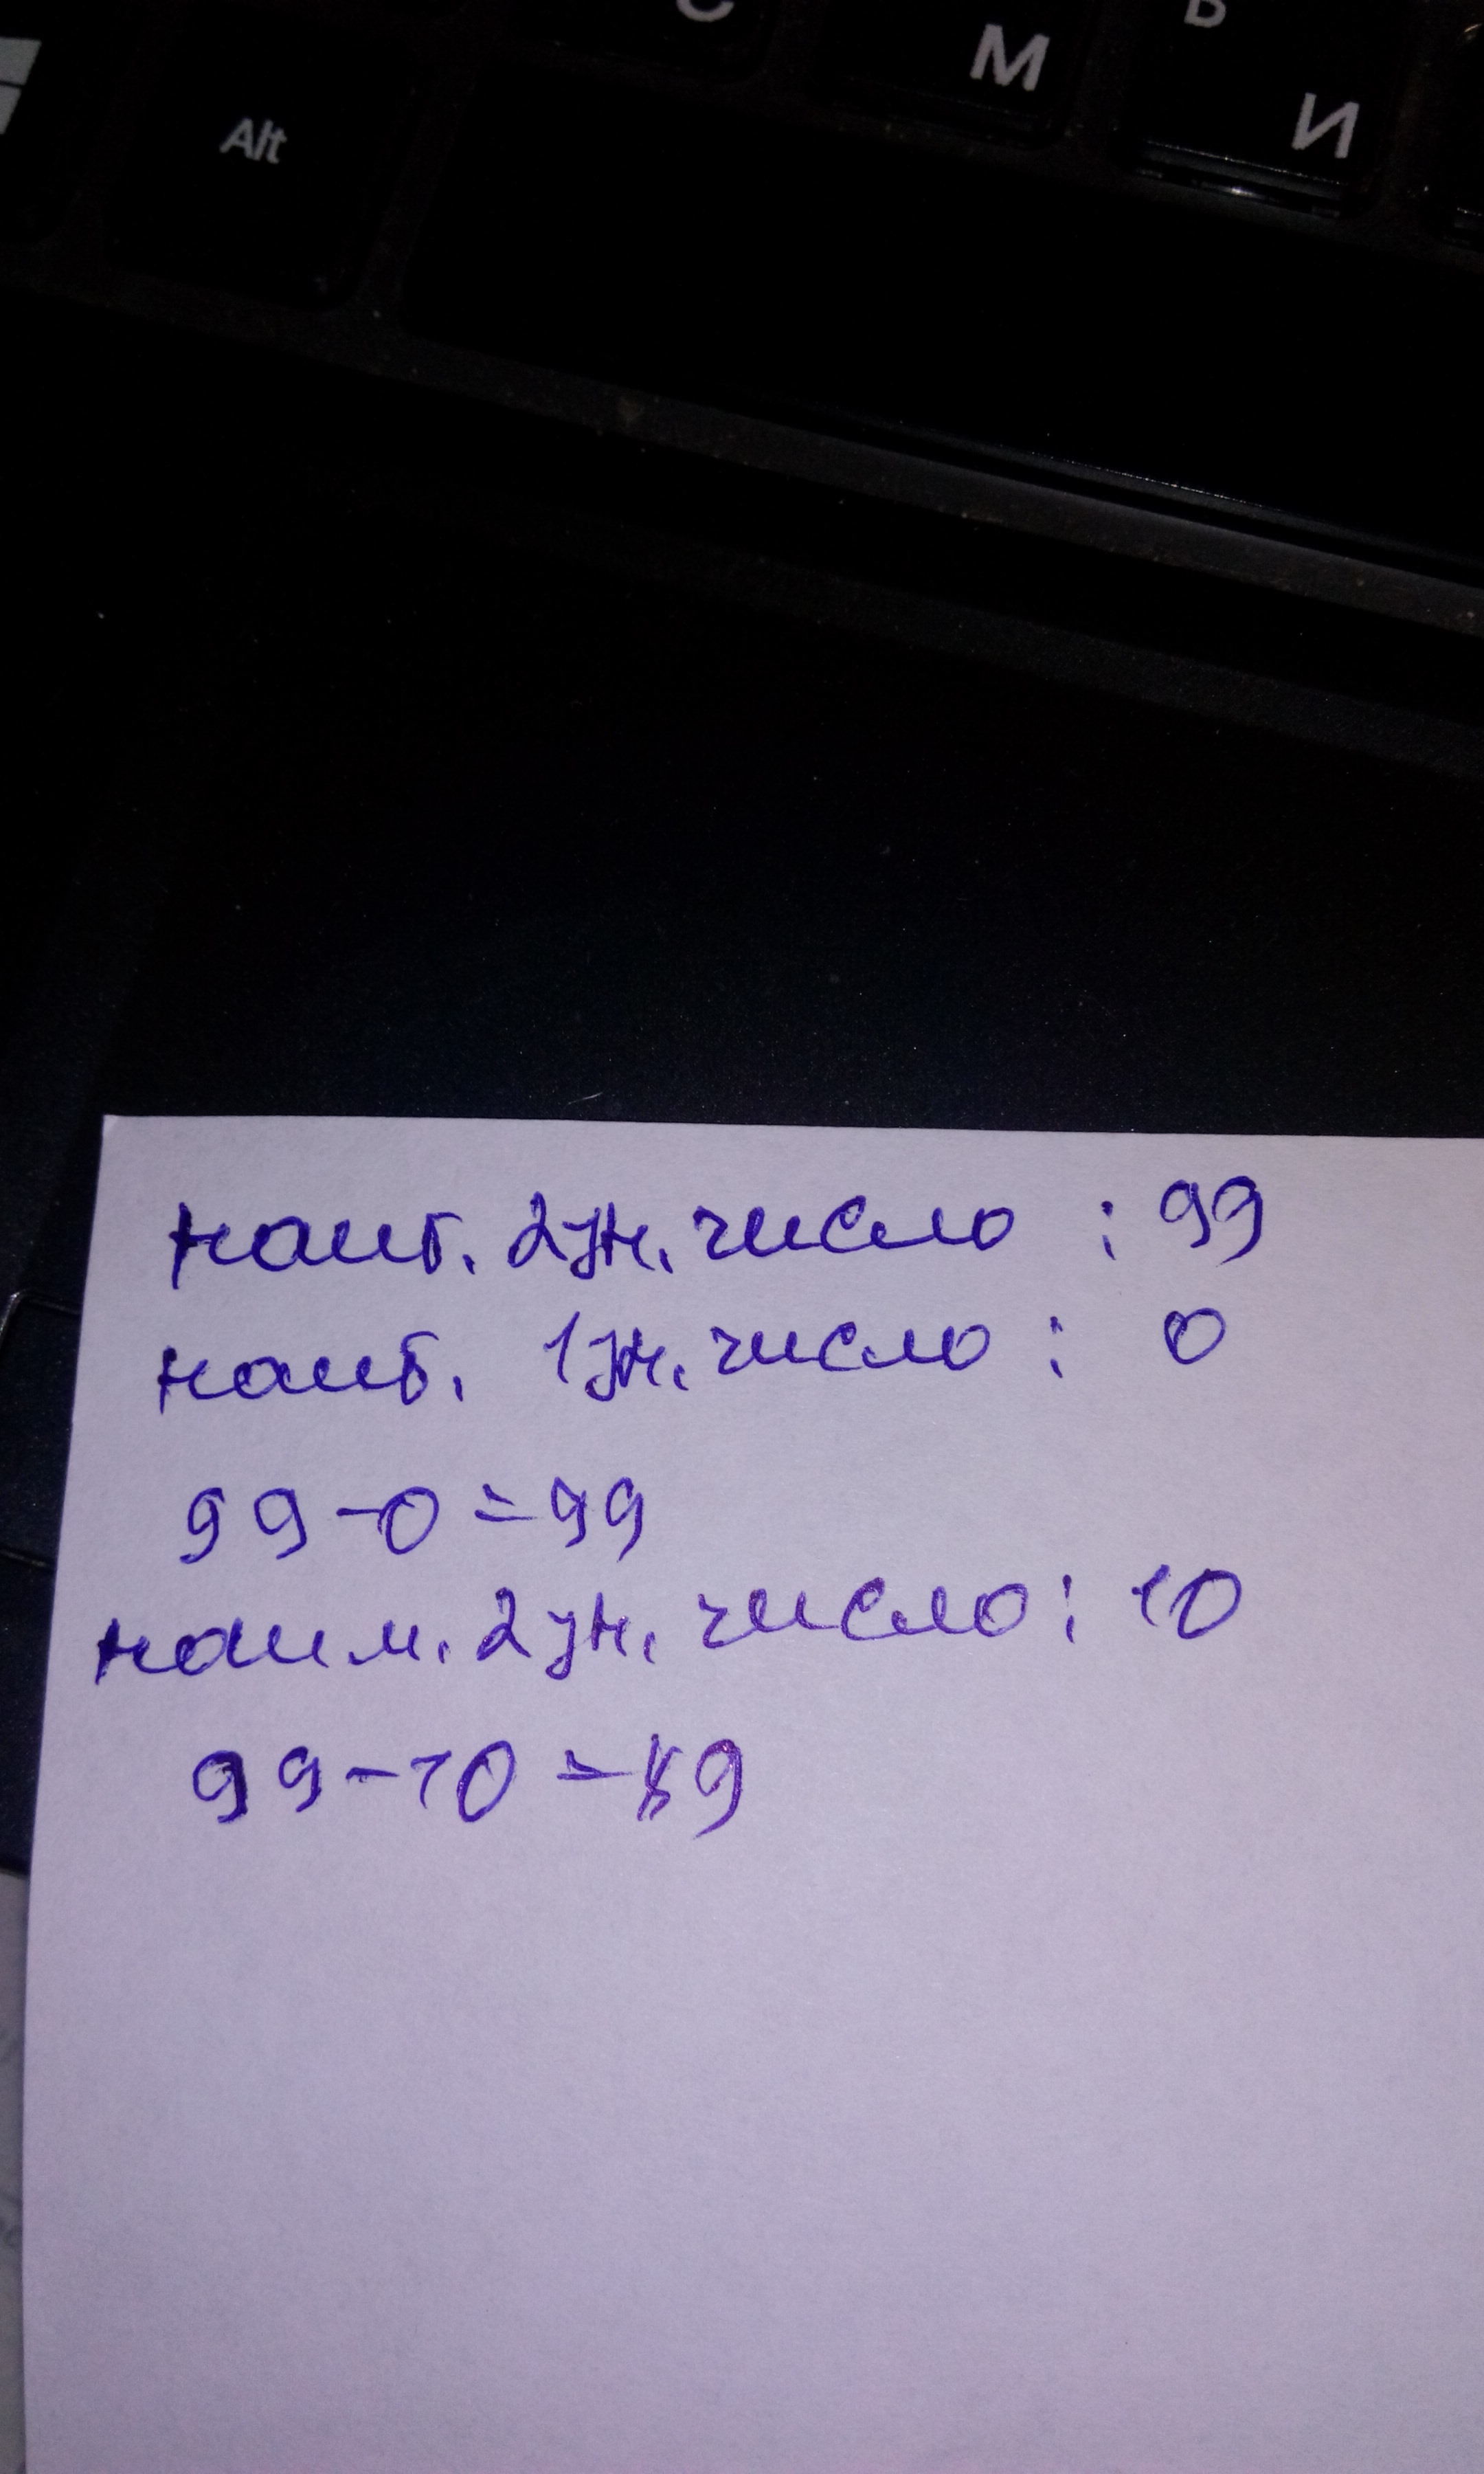 С
М
Ь
И
Alt
наиб. 2зн. число : 99
наиб. 1зн. число : 0
99-0=99
наим. 2зн. число: 10
99-10=89